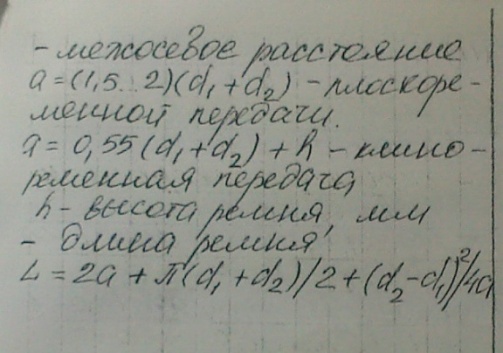 - межосевое расстояние
a = (1,5..2)(d₁+d₂) - плоскоре-
менной передачи.
a = 0,55(d₁+d₂) + h - клино-
ременная передача
h - высота ремня, мм
- длина ремня
L = 2a + π(d₁+d₂)/2 + (d₂-d₁)²/4a